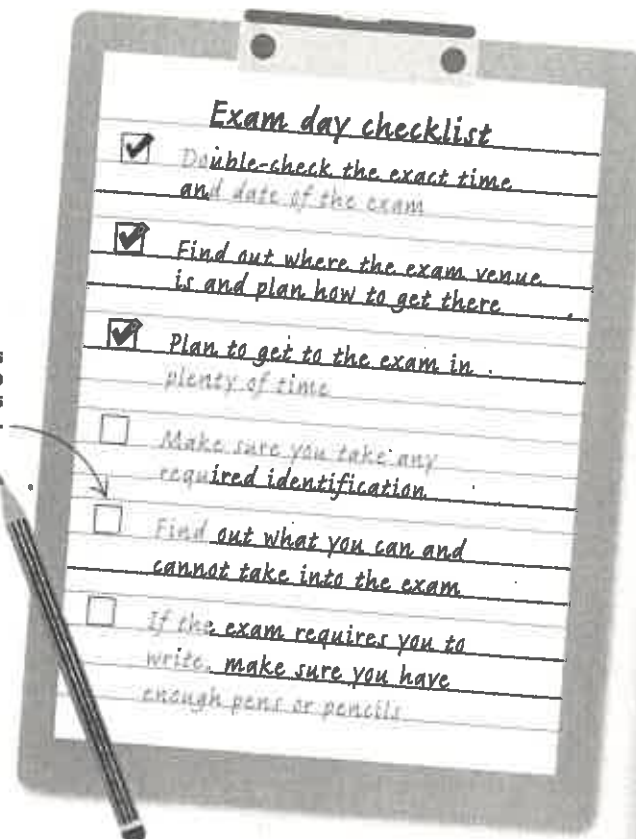 Exam day checklist
Double-check the exact time
and date of the exam
Find out where the exam venue
is and plan how to get there
Plan to get to the exam in
plenty of time
Make sure you take any
required identification
Find out what you can and
cannot take into the exam
If the exam requires you to
write, make sure you have
enough pens or pencils